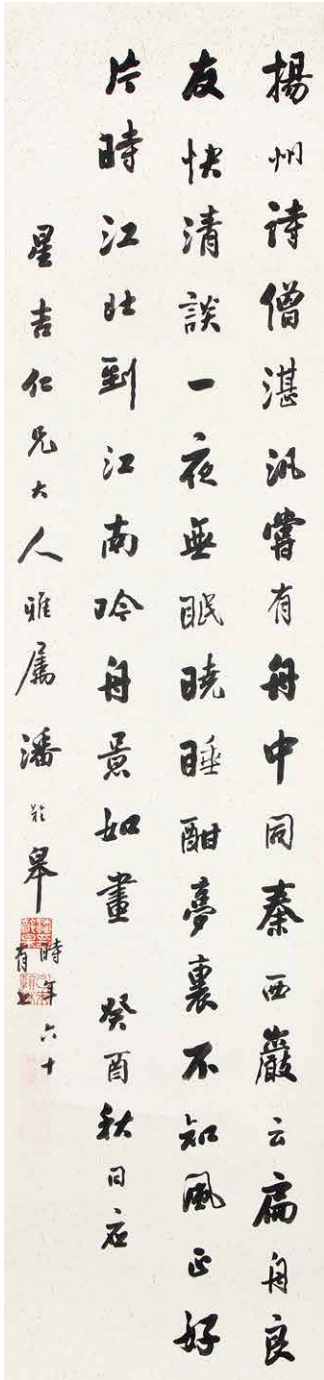 揚州詩僧湛汎嘗有舟中同秦西巖云扁舟良
友快清談一夜無眠曉睡酣夢裏不知風正好
片時江北到江南吟舟景如畫 癸酉秋日應
星吉仁兄大人雅屬潘齡皋時年六十有七